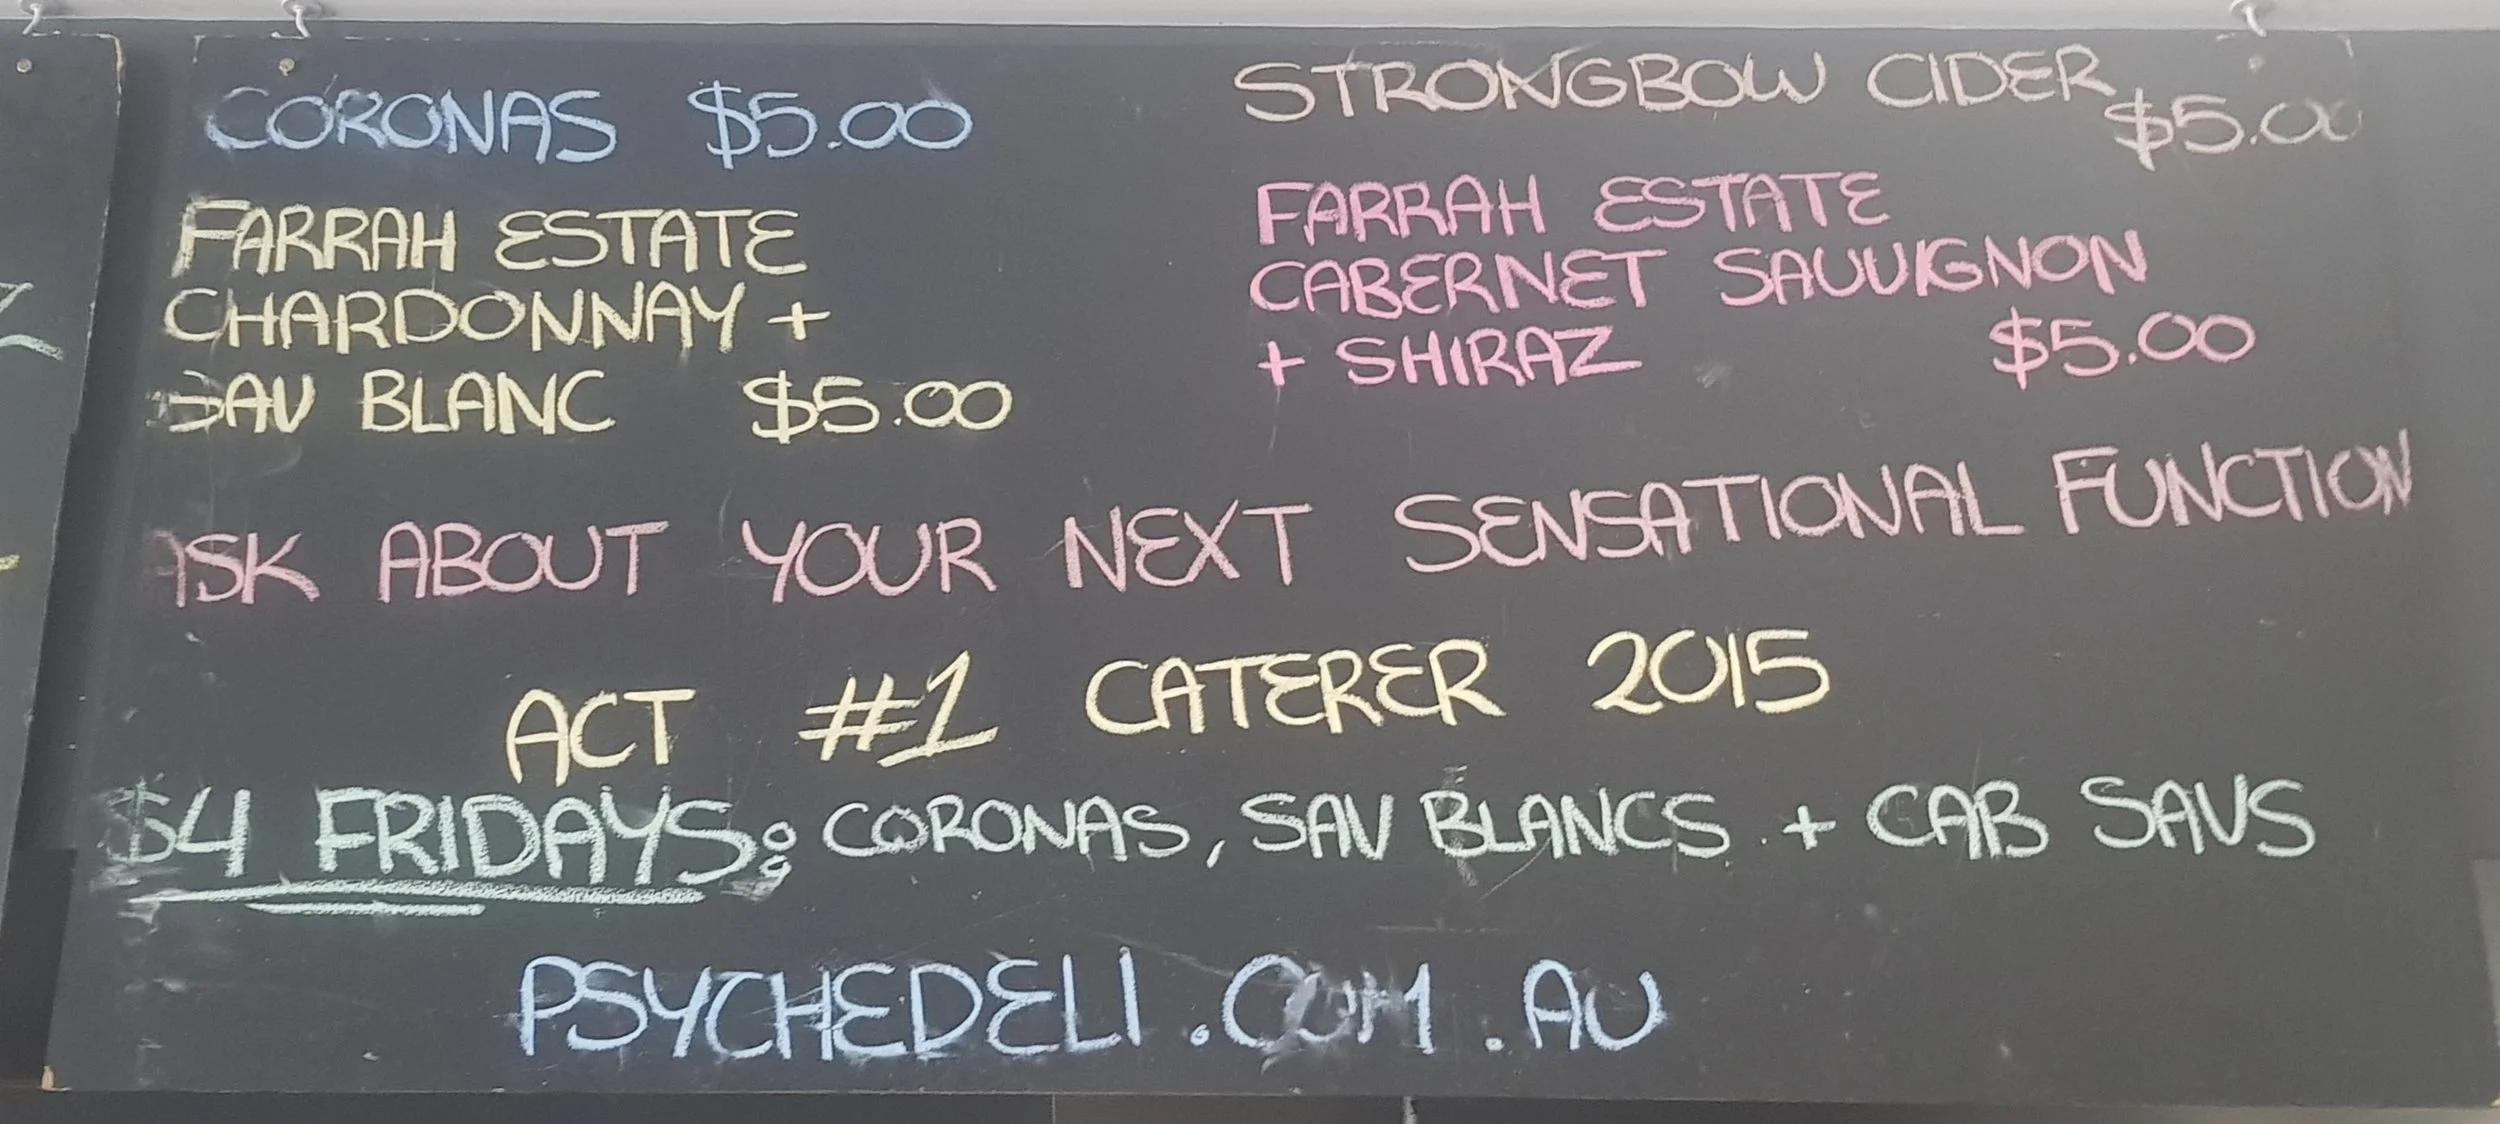 CORONAS $5.00
FARRAH ESTATE
CHARDONNAY +
SAV BLANC $5.00
STRONGBOW CIDER
$5.00
FARRAH ESTATE
CABERNET SAUVIGNON
+ SHIRAZ $5.00
ASK ABOUT YOUR NEXT SENSATIONAL FUNCTION
ACT #1 CATERER 2015
$4 FRIDAYS: CORONAS, SAV BLANCS + CAB SAVS
PSYCHEDELI.COM.AU